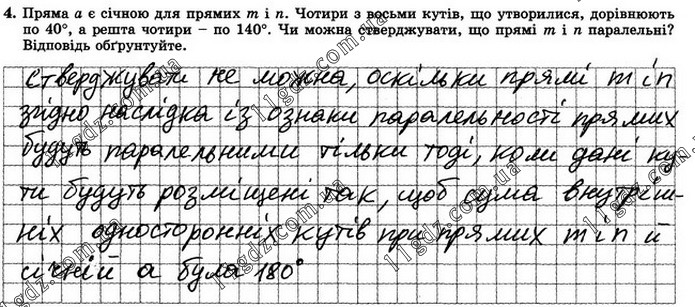 4. Пряма a є січною для прямих m і n. Чотири з восьми кутів, що утворилися, дорівнюють
по 40°, а решта чотири – по 140°. Чи можна стверджувати, що прямі m і n паралельні?
Відповідь обґрунтуйте.
Стверджувати не можна, оскільки прямі m і n
згідно наслідка із ознаки паралельності прямих
будуть паралельними тільки тоді, коли дані ку-
ти будуть розміщені так, щоб сума внутріш-
ніх односторонніх кутів при прямих m і n й
січній a була 180°
11gdz.com.ua